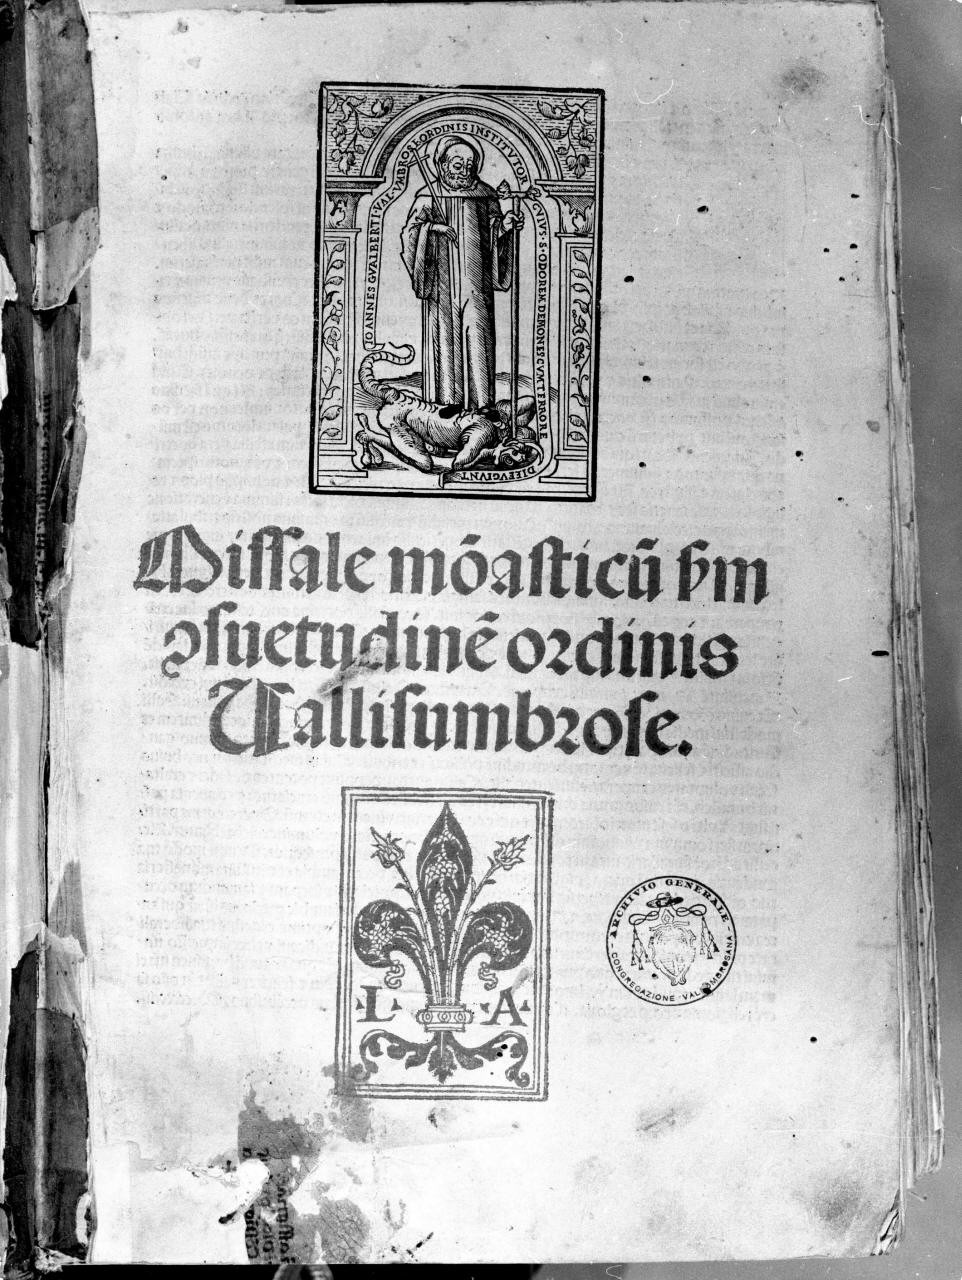 IOANNES GVALBERTI VAL·VMBROSE ORDINIS INSTITVTOR
CVIVS·S·ODOREM DEMONES CVM TERRORE
DIEFVGIVNT
Missale mōasticū ẜm
ꝯsuetudinē ordinis
Vallisumbrose.
L A
ARCHIVIO GENERALE
CONGREGAZIONE VALLOMBROSANA